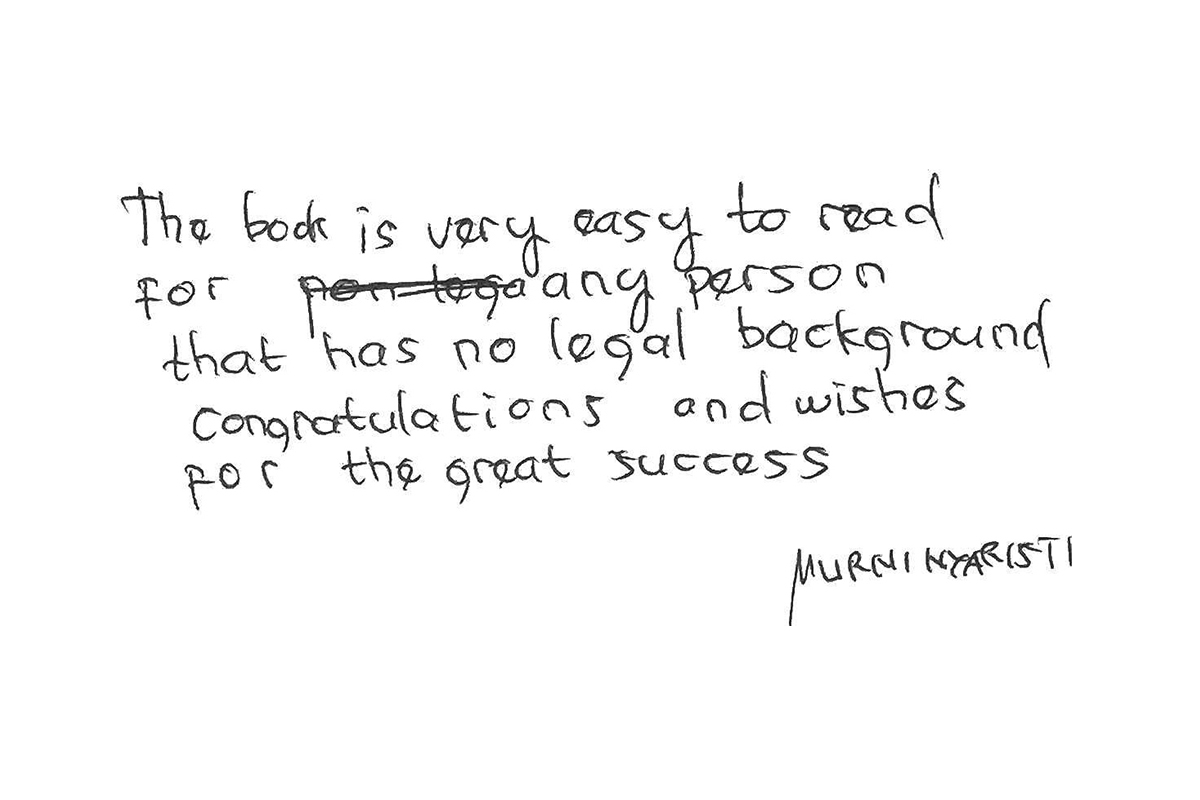 The book is very easy to read
for any person
that has no legal background
congratulations and wishes
for the great success
MURNI NYARISTI